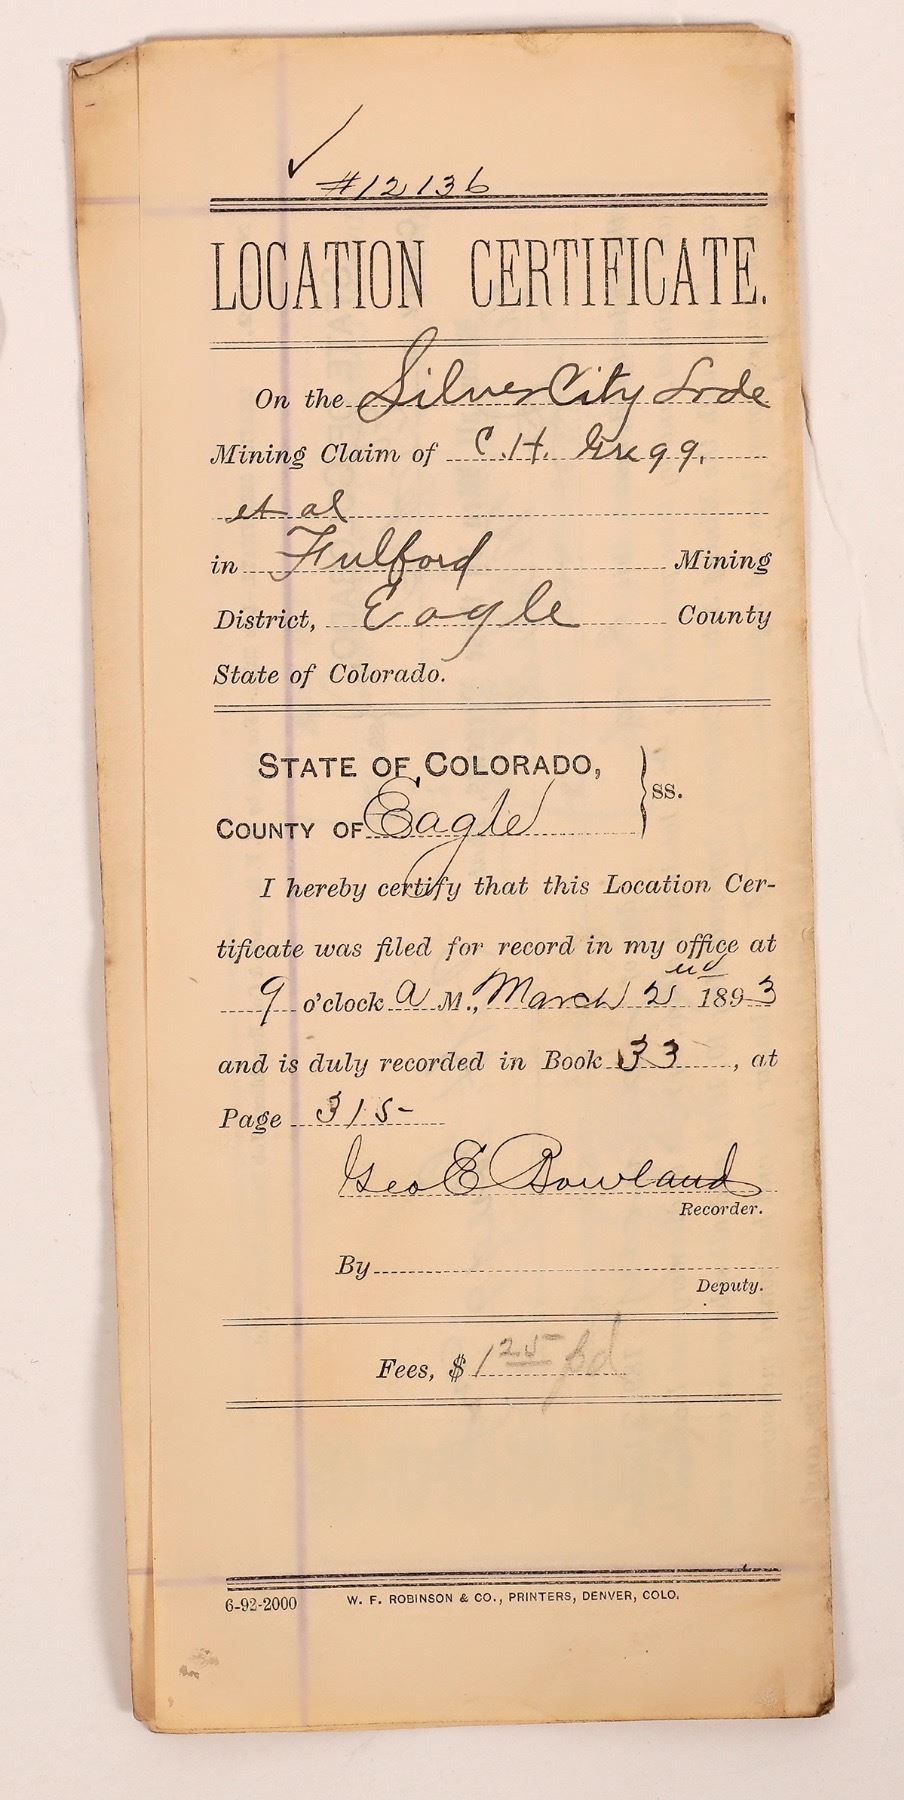 ✓
#12136
LOCATION CERTIFICATE.
On the Silver City Lode
Mining Claim of C. H. Gregg,
et al
in Fulford Mining
District, Eagle County
State of Colorado.
STATE OF COLORADO,
COUNTY OF Eagle } ss.
I hereby certify that this Location Cer-
tificate was filed for record in my office at
9 o'clock A M., March 2nd 1893
and is duly recorded in Book 33, at
Page 315-
Geo E Bowland
Recorder.
By
Deputy.
Fees, $ 1 25 pd
6-92-2000 W. F. ROBINSON & CO., PRINTERS, DENVER, COLO.